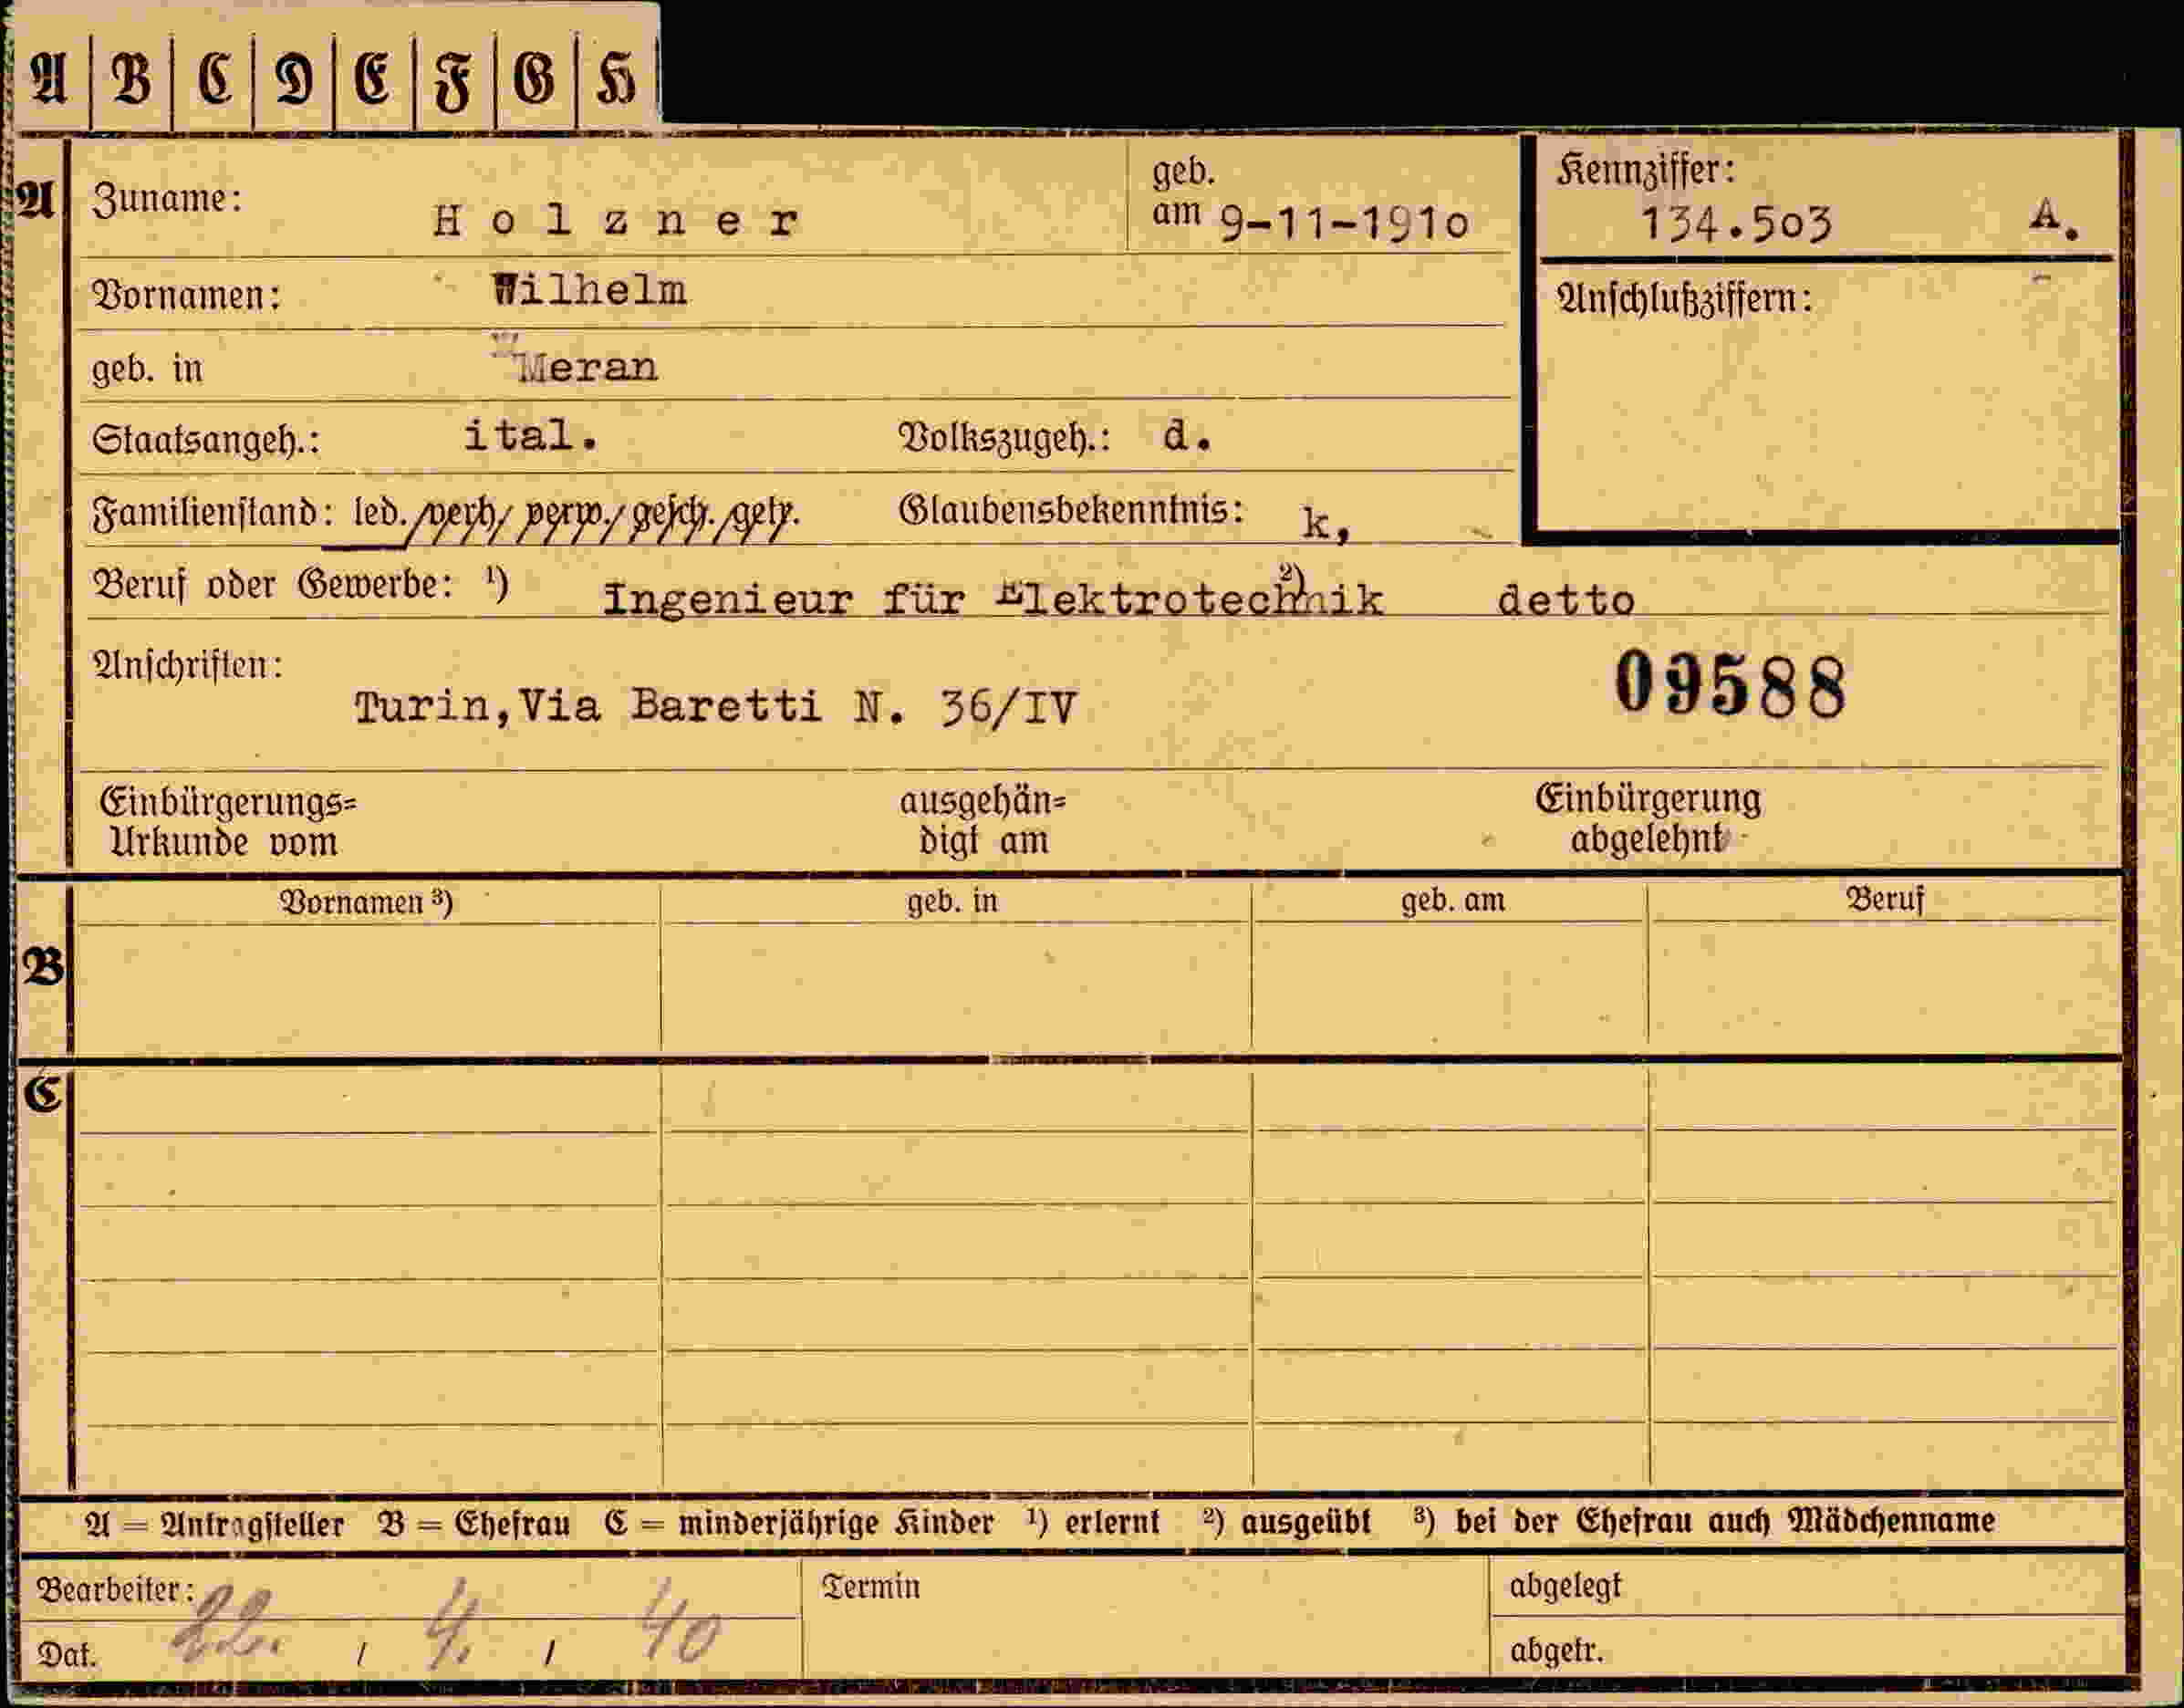 A B C D E F G H
A Zuname: Holzner geb. am 9-11-1910 Kennziffer: 134.503 A.
Vornamen: Wilhelm Anschlußziffern:
geb. in Meran
Staatsangeh.: ital. Volkszugeh.: d.
Familienstand: led./verh/verw./gesch./getr. Glaubensbekenntnis: k,
Beruf oder Gewerbe: ¹) Ingenieur für Elektrotechnik ²) detto
Anschriften: 09588
Turin,Via Baretti N. 36/IV
Einbürgerungs= ausgehän= Einbürgerung
Urkunde vom digt am abgelehnt
Vornamen ³) geb. in geb. am Beruf
B
C
A = Antragsteller B = Ehefrau C = minderjährige Kinder ¹) erlernt ²) ausgeübt ³) bei der Ehefrau auch Mädchenname
Bearbeiter: Termin abgelegt
Dat. 22. / 4. / 40 abgetr.